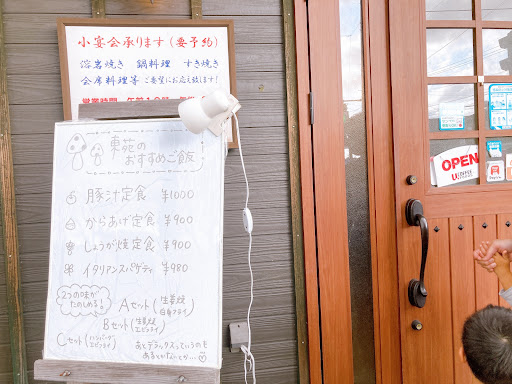 小宴会承ります(要予約)
溶岩焼き 鍋料理 すき焼き
会席料理等 ご要望にお応え致します!
営業時間
東苑の
おすすめご飯
豚汁定食 ¥1000
からあげ定食 ¥900
しょうが焼定食 ¥900
イタリアンスパゲティ ¥980
2つの味が
たのしめる!
Aセット(生姜焼 白身フライ)
Bセット(生姜焼 エビフライ)
Cセット(ハンバーグ エビフライ)
あとデラックスっていうのも
あるとかないとか…
OPEN